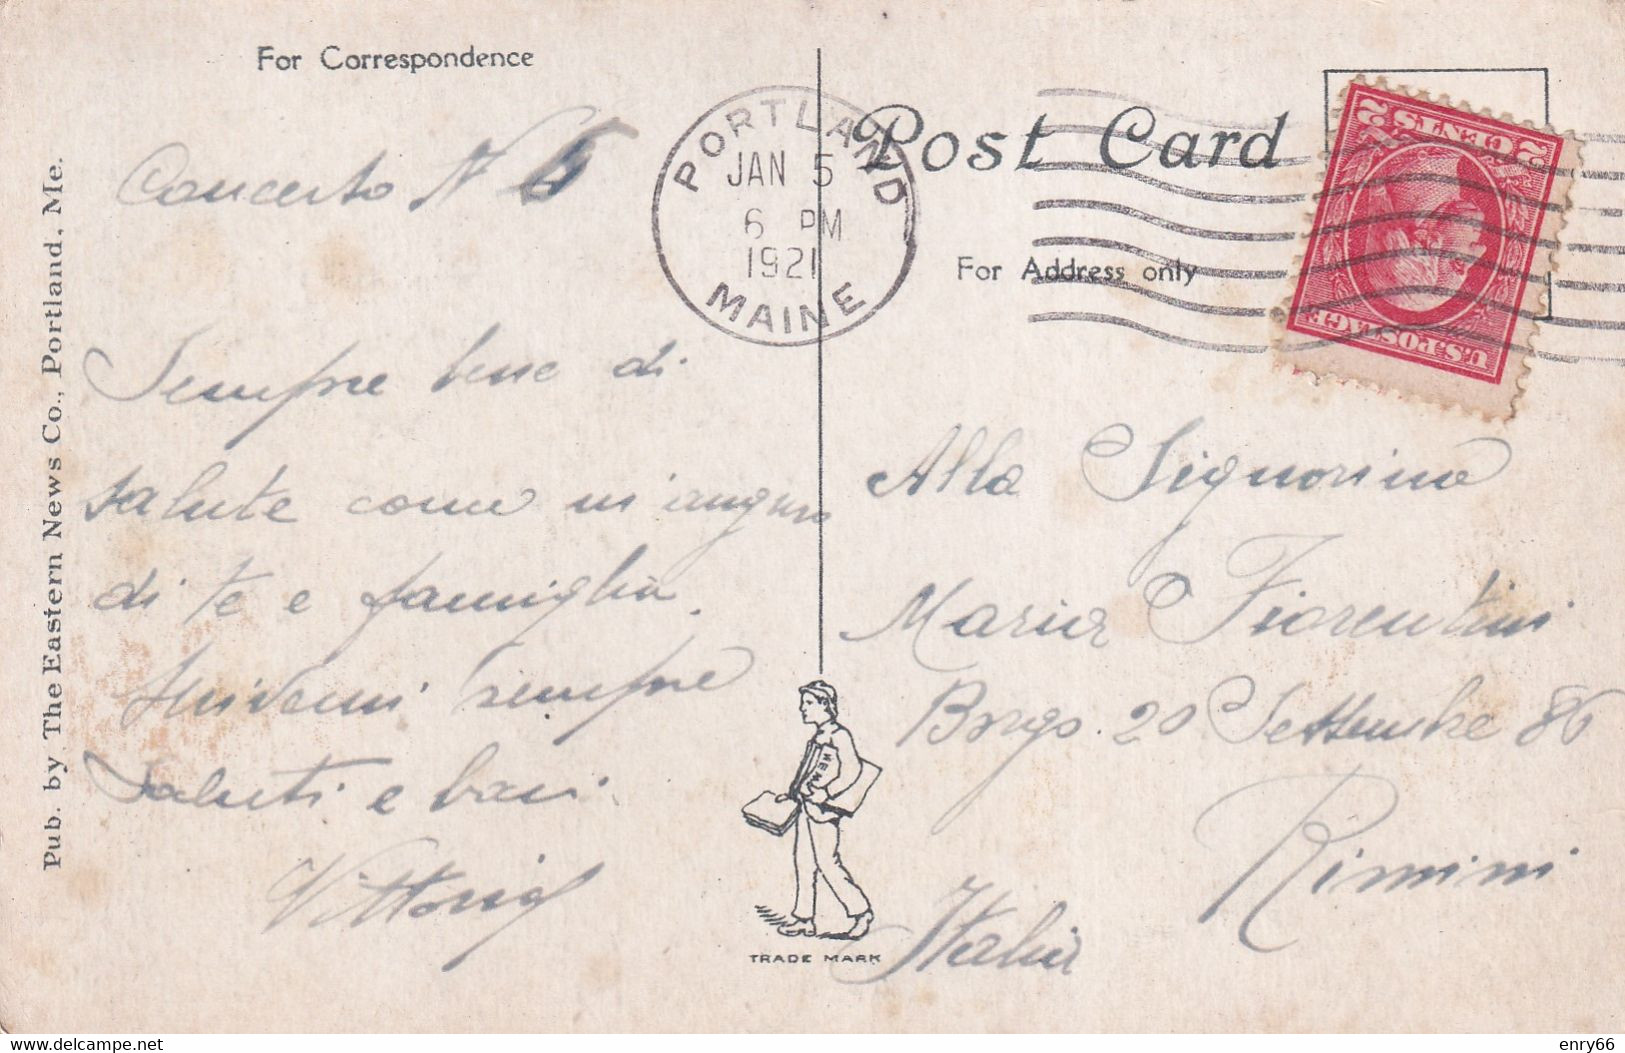 For Correspondence
Concerto N 6
Sempre bene di
salute come m'auguro
di te e famiglia.
scrivemi sempre
Saluti e baci
Vittorio
Pub. by The Eastern News Co., Portland, Me.
PORTLAND
JAN 5
6 PM
1921
MAINE
Post Card
For Address only
U.S. POSTAGE
2 CENTS 2
Alla Signorina
Maria Fiorentini
Borgo 20 Settembre 86
Rimini
Italia
NEWS
TRADE MARK
www.delcampe.net
enry66